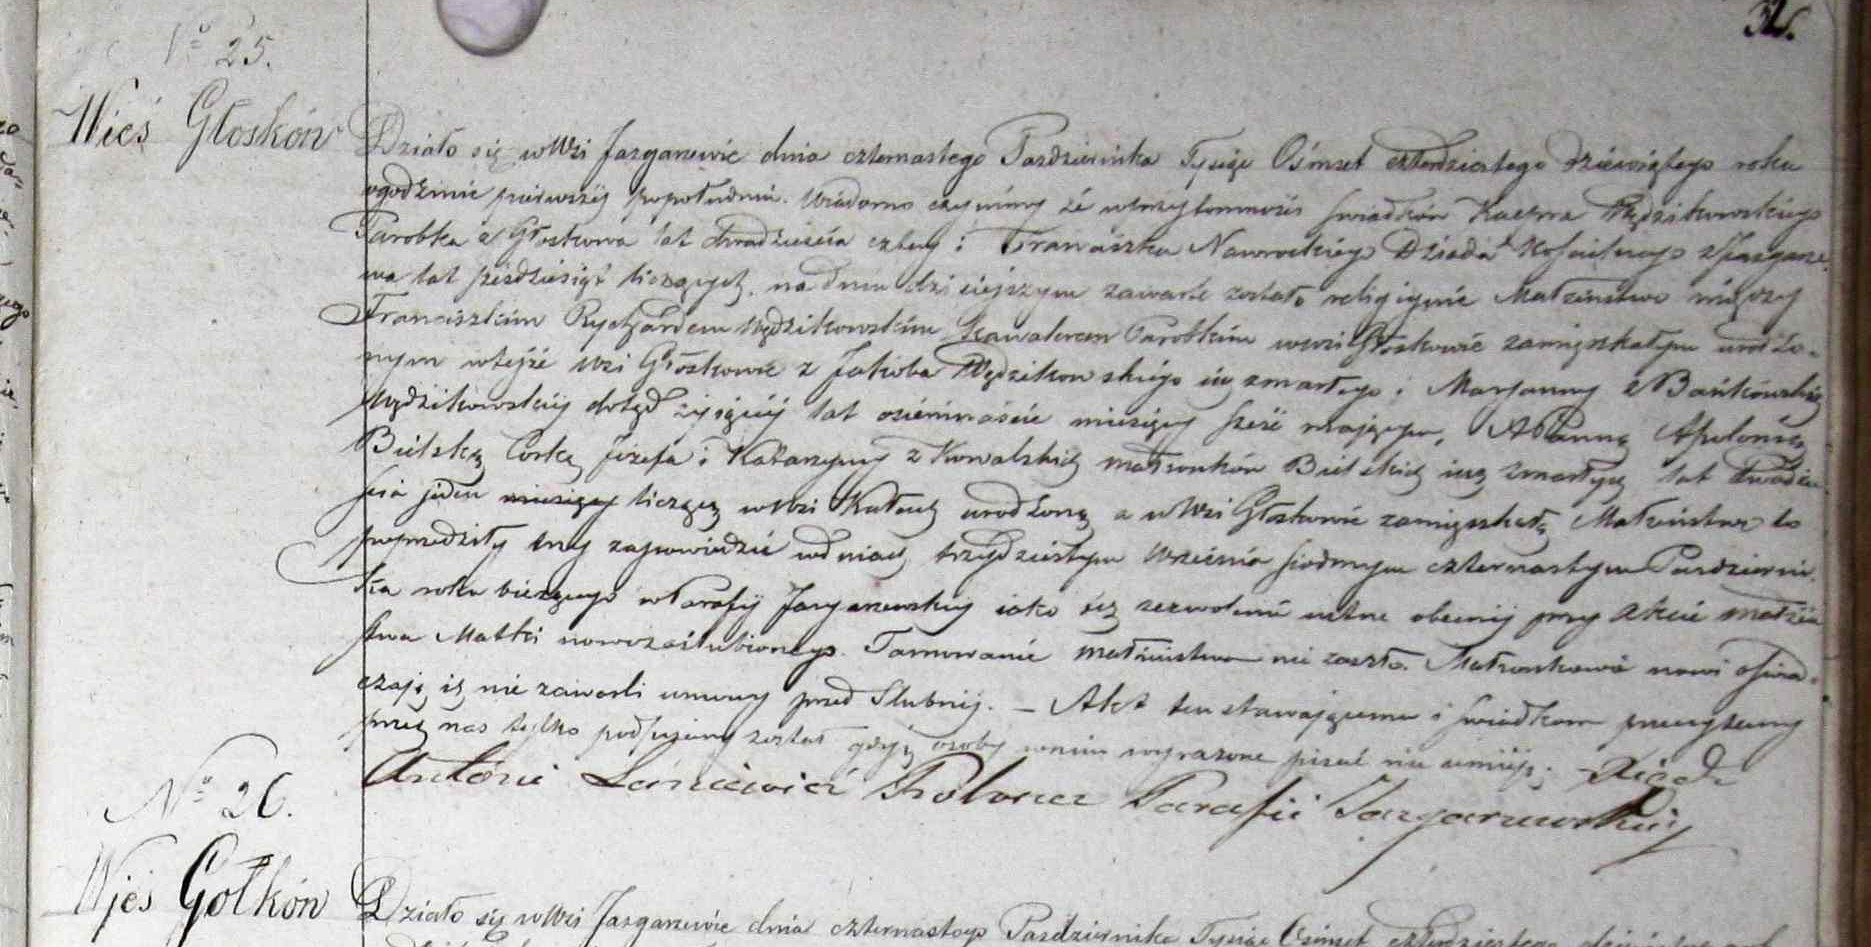 32.
No 25.
Wieś Głosków
Działo się w Wsi Jazgarzewie dnia czternastego Pazdziernika Tysiąc Ośmset czterdziestego dziewiątego roku
ogodzinie pierwszéy popołudniu. Wiadomo czyniemy że wprzytomności świadków Kacpra Wędzikowskiego
Parobka z Głoskowa lat dwadzieścia cztery i Franciszka Nawrockiego Dziada Kościelnego z Jazgarze-
wa lat sześdziesiąt liczących, na dniu dzisieyszym zawarte zostało religiynie Małżeństwo między
Franciszkiem Rychardem Wędzikowskim Kawalerem Parobkiem wewsi Głoskowie zamięszkałym urodzo-
nym wtejże Wsi Głoskowie z Jakóba Wędzikowskiego iuż zmarłego i Maryanny z Bańkowskich
Wędzikowskiéy dotąd żyjącéy lat ośiemnaście miesięcy sześć mającym, A Panną Apolonią
Bielską Corką Józefa i Katarzyny z Kowalskich małżonków Bielskich iuż zmarłych lat dwadzie-
ścia jeden miesięcy liczącą w Wsi urodzoną a w Wsi Głoskowie zamięszkałą Małżeństwo to
poprzedziły trzy zapowiedzie wdniach trzydziestym Września siodmym czternastym Pazdzierni-
ka roku bieżącego w Parafij Jazgarzewskiéj iako téż zezwolenie ustne obecnéj przy Akcie małżeń
stwa Matki nowozaślubionego. Tamowanie małżeństwa nie zaszło. Małżonkowie nowi oświad-
czają iż nie zawarli umowy przed Slubnéj. – Akt ten stawającemu i świadkom przeczytany
przez nas tylko podpisany został gdyż osoby wnim wyrażone pisać nie umieją. – Xiądz
Antoni Łaniewicz Proboszcz Parafii Jazgarzewskiéj
No 26.
Wieś Gołków
Działo się w Wsi Jazgarzewie dnia czternastego Pazdziernika Tysiąc Ośmset czterdziestego